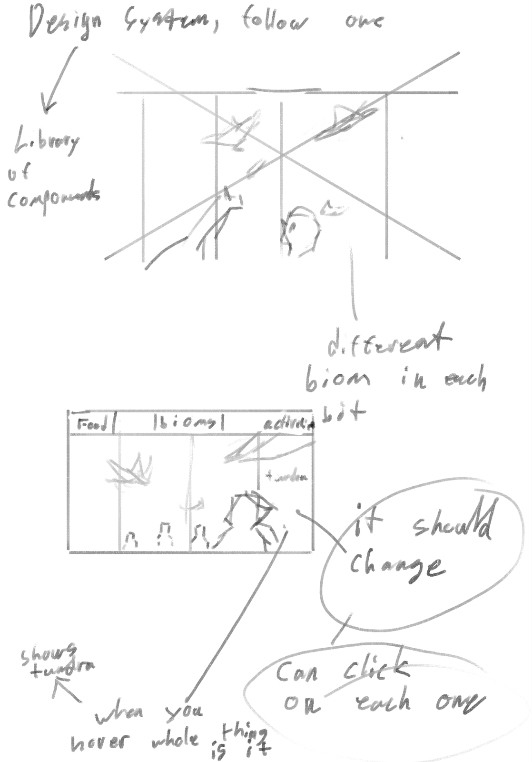 Design System, follow one
Library
of
components
different
biom in each
bit
Food
bioms
tundra
it should
change
Can click
on each one
shows
tundra
when you
hover whole thing
is it